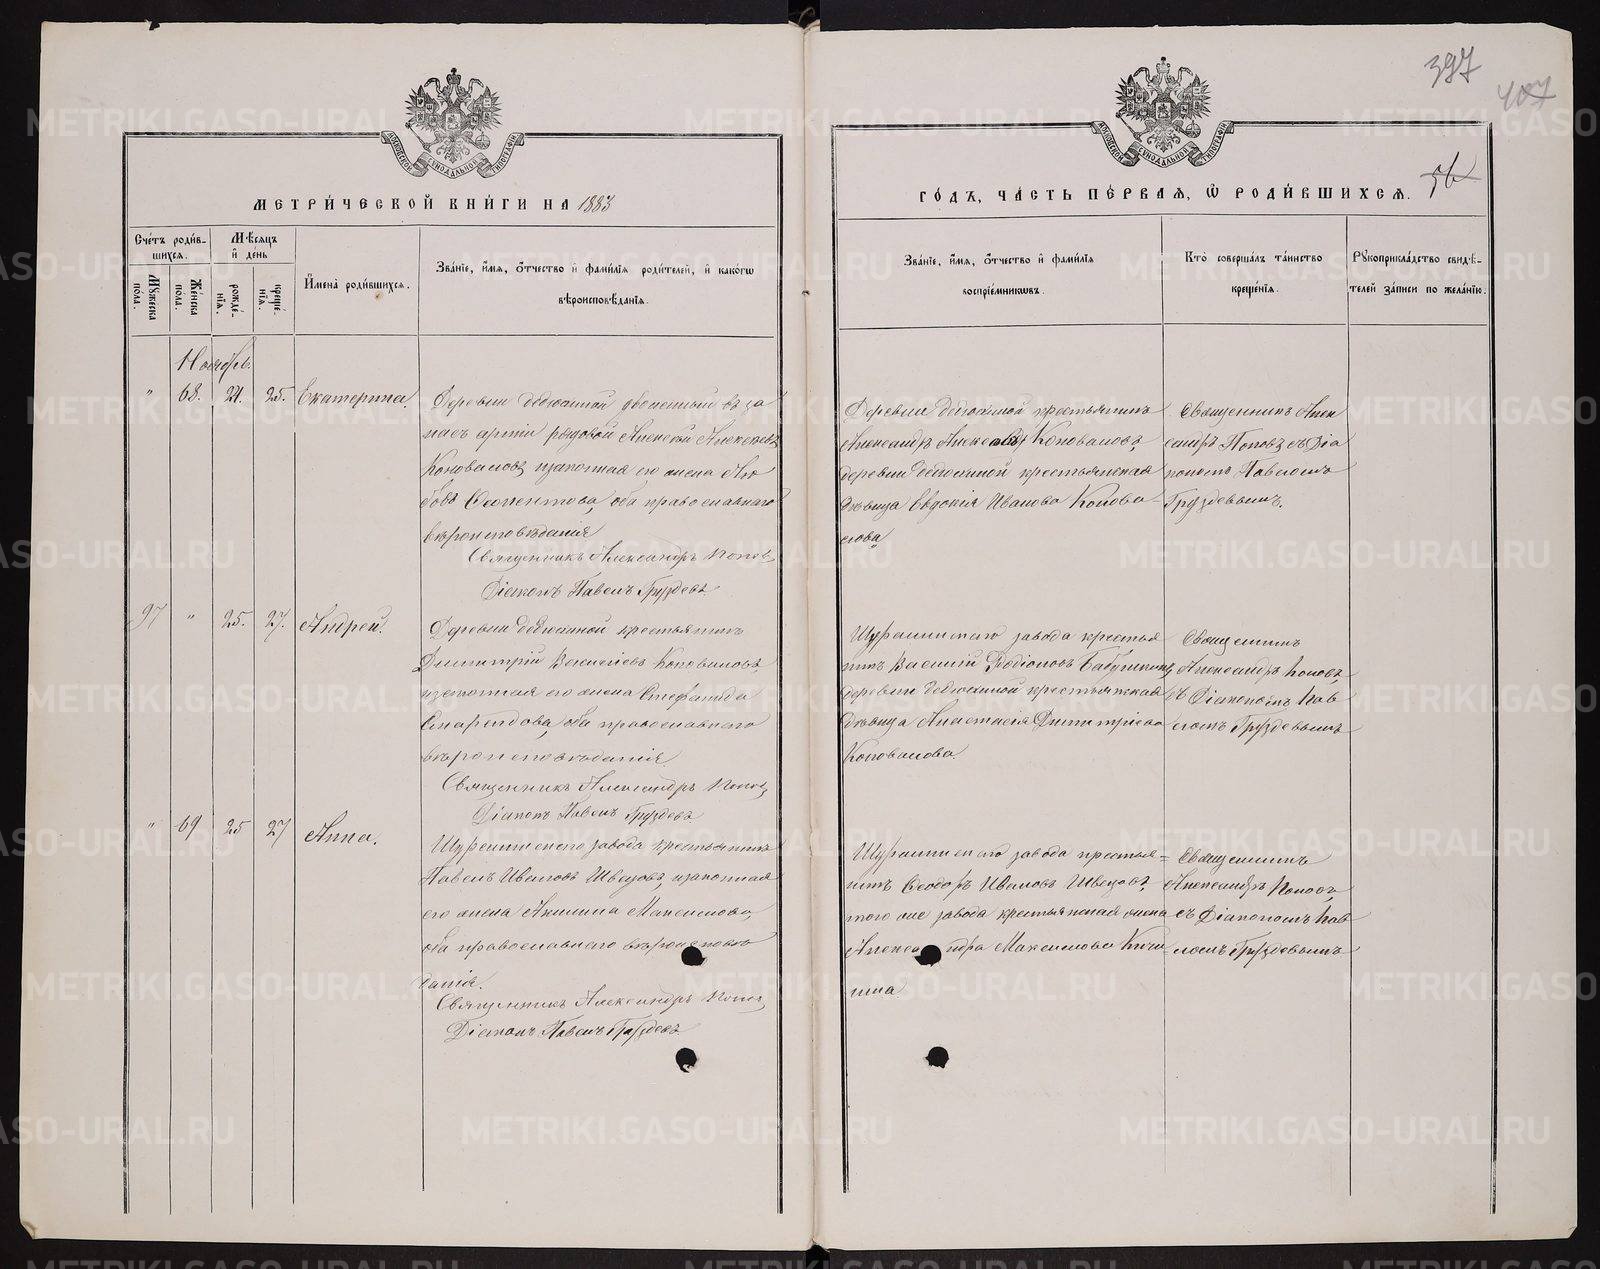 397
407
56
МЕТРИ́ЧЕСКОЙ КНИ́ГИ НА 1883
Сче́тъ роди́в-
шихсѧ.
Мѣ́сѧцъ
и҆ де́нь
Мꙋ́жеска
по́ла.
Же́нска
по́ла.
рожде́-
нїѧ.
креще́-
нїѧ.
И҆мена̀ роди́вшихсѧ.
Зва́нїе, и҆́мѧ, ѻ҆́тчество и҆ фами́лїѧ роди́телей, и҆ како́гѡ
вѣроисповѣ́данїѧ.
Ноябрь.
" 68. 24. 25. Екатерина.
Деревни двѣ за
пасъ арміи рядовой Алексѣй Алексѣевъ
Коноваловъ и законная его жена Лю
бовь оба православнаго
вѣроисповѣданія
Священникъ Александръ Поповъ
Діаконъ Павелъ Груздевъ
97 " 25. 27. Андрей.
Деревни крестьянинъ
Димитрій Коноваловъ,
и законная его жена Стефанида
оба православнаго
вѣроисповѣданія.
Священникъ Александръ Поповъ
Діаконъ Павелъ Груздевъ
" 69 25 27 Анна.
завода крестьянинъ
Павелъ Ивановъ Швецовъ, и законная
его жена Акилина Максимова,
оба православнаго вѣроисповѣ
данія.
Священникъ Александръ Поповъ
Діаконъ Павелъ Груздевъ
ГО́ДЪ, ЧА́СТЬ ПЕ́РВАЯ, Ѡ҆ РОДИ́ВШИХСѦ.
Зва́нїе, и҆́мѧ, ѻ҆́тчество и҆ фами́лїѧ
воспрїе́мникѡвъ.
Кто̀ соверша́лъ та́инство
креще́нїѧ.
Рꙋкоприкла́дство свидѣ́-
телей за́писи по жела́нїю.
Деревни крестьянинъ
Александръ Алексѣевъ Коноваловъ,
деревни крестьянская
дѣвица Евдокія Иванова Конова-
лова
Священникъ Алек
сандръ Поповъ съ Діа
кономъ Павломъ
Груздевымъ.
завода крестья
нинъ Василій Родіоновъ Бабушкинъ
деревни крестьянская
дѣвица Анастасія Димитріева
Коновалова.
Священникъ
Александръ Поповъ,
съ Діакономъ Пав
ломъ Груздевымъ
завода крестья-
нинъ Ѳеодоръ Ивановъ Швецовъ,
того же завода крестьянская жена
Александра Максимова
Священникъ
Александръ Поповъ,
съ Діакономъ Пав
ломъ Груздевымъ